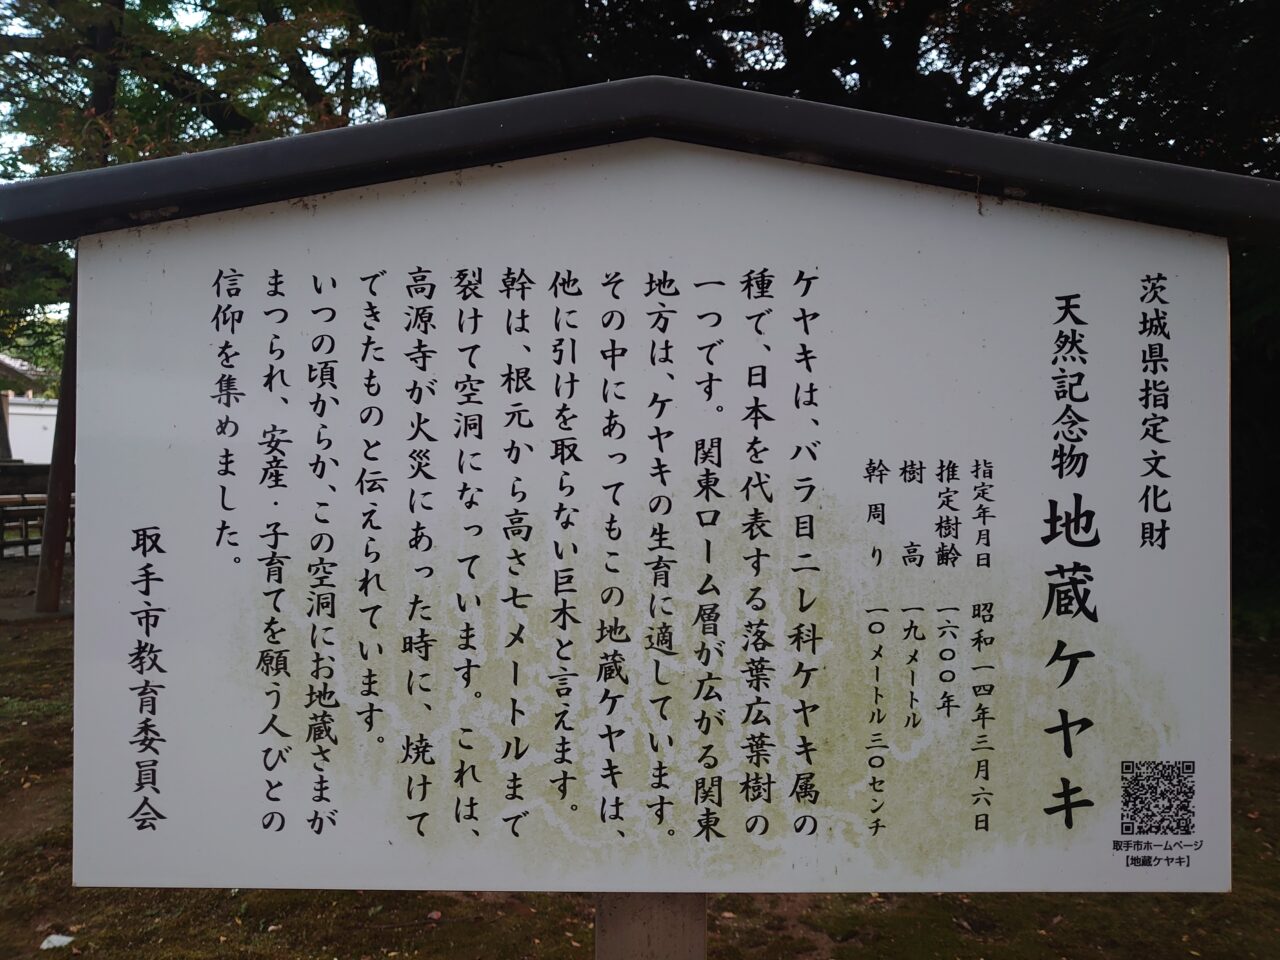 茨城県指定文化財
天然記念物 地蔵ケヤキ
指定年月日 昭和一四年三月六日
推定樹齢 一六〇〇年
樹高 一九メートル
幹周り 一〇メートル三〇センチ
ケヤキは、バラ目ニレ科ケヤキ属の
種で、日本を代表する落葉広葉樹の
一つです。関東ローム層が広がる関東
地方は、ケヤキの生育に適しています。
その中にあってもこの地蔵ケヤキは、
他に引けを取らない巨木と言えます。
幹は、根元から高さ七メートルまで
裂けて空洞になっています。これは、
高源寺が火災にあった時に、焼けて
できたものと伝えられています。
いつの頃からか、この空洞にお地蔵さまが
まつられ、安産・子育てを願う人びとの
信仰を集めました。
取手市教育委員会
取手市ホームページ
【地蔵ケヤキ】